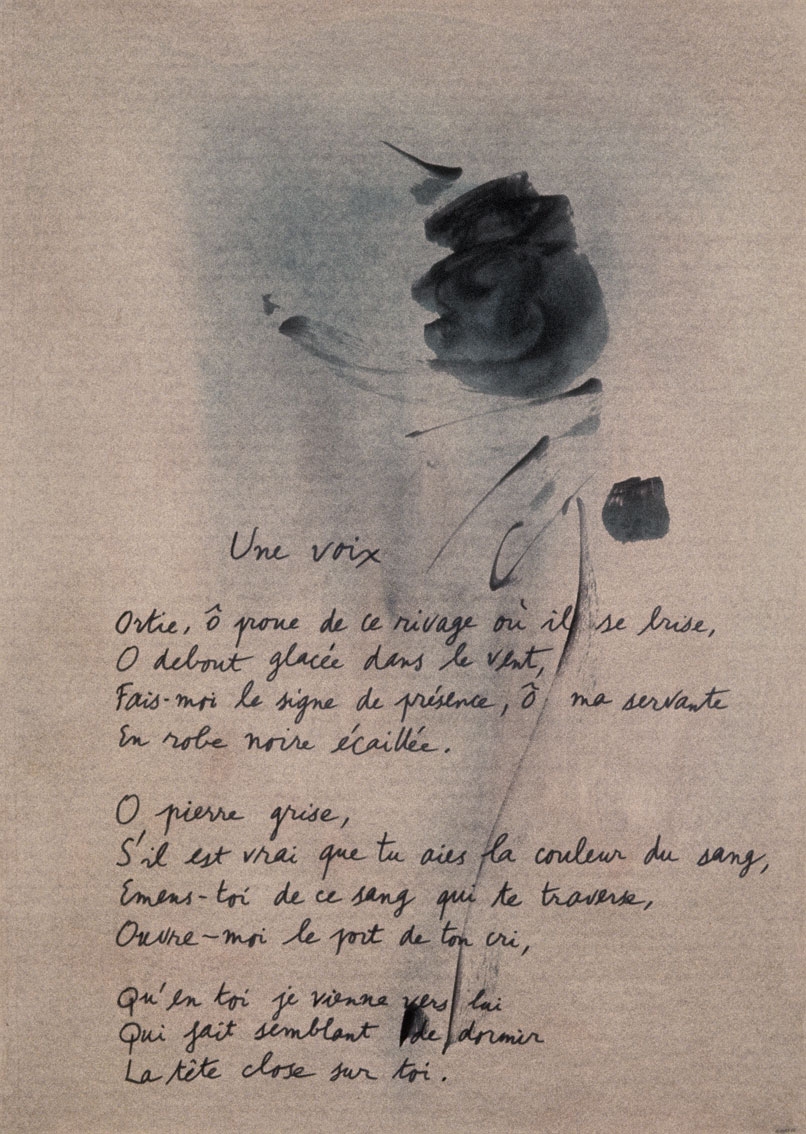 Une voix
Ortie, ô proue de ce rivage où il se brise,
O debout glacée dans le vent,
Fais-moi le signe de présence, ô ma servante
En robe noire écaillée.
O pierre grise,
S'il est vrai que tu aies la couleur du sang,
Emeus-toi de ce sang qui te traverse,
Ouvre-moi le port de ton cri,
Qu'en toi je vienne vers lui
Qui fait semblant de dormir
La tête close sur toi.